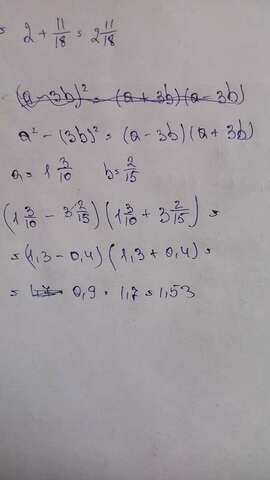 = 2 + 11/18 = 2 11/18
(a - 3b)² = (a + 3b)(a - 3b)
a² - (3b)² = (a - 3b)(a + 3b)
a = 1 3/10 b = 2/15
(1 3/10 - 3 2/15)(1 3/10 + 3 2/15) =
= (1,3 - 0,4)(1,3 + 0,4) =
= 0,9 · 1,7 = 1,53